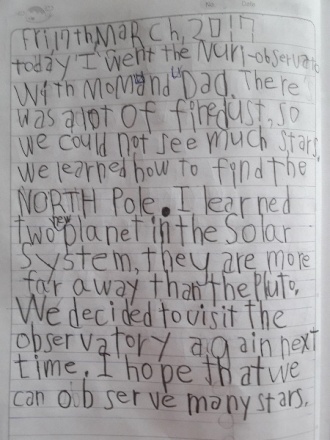 Fri,17th,March,2017
today I went the Nuri-observato
with Mom and Dad. There
was a lot of finedust, so
we could not see much stars.
we learned how to find the
NORTH Pole. I learned
two new planet in the Solar
System, they are more
far away than the Pluto.
We decided to visit the
observatory again next
time. I hope that we
can observe many stars.